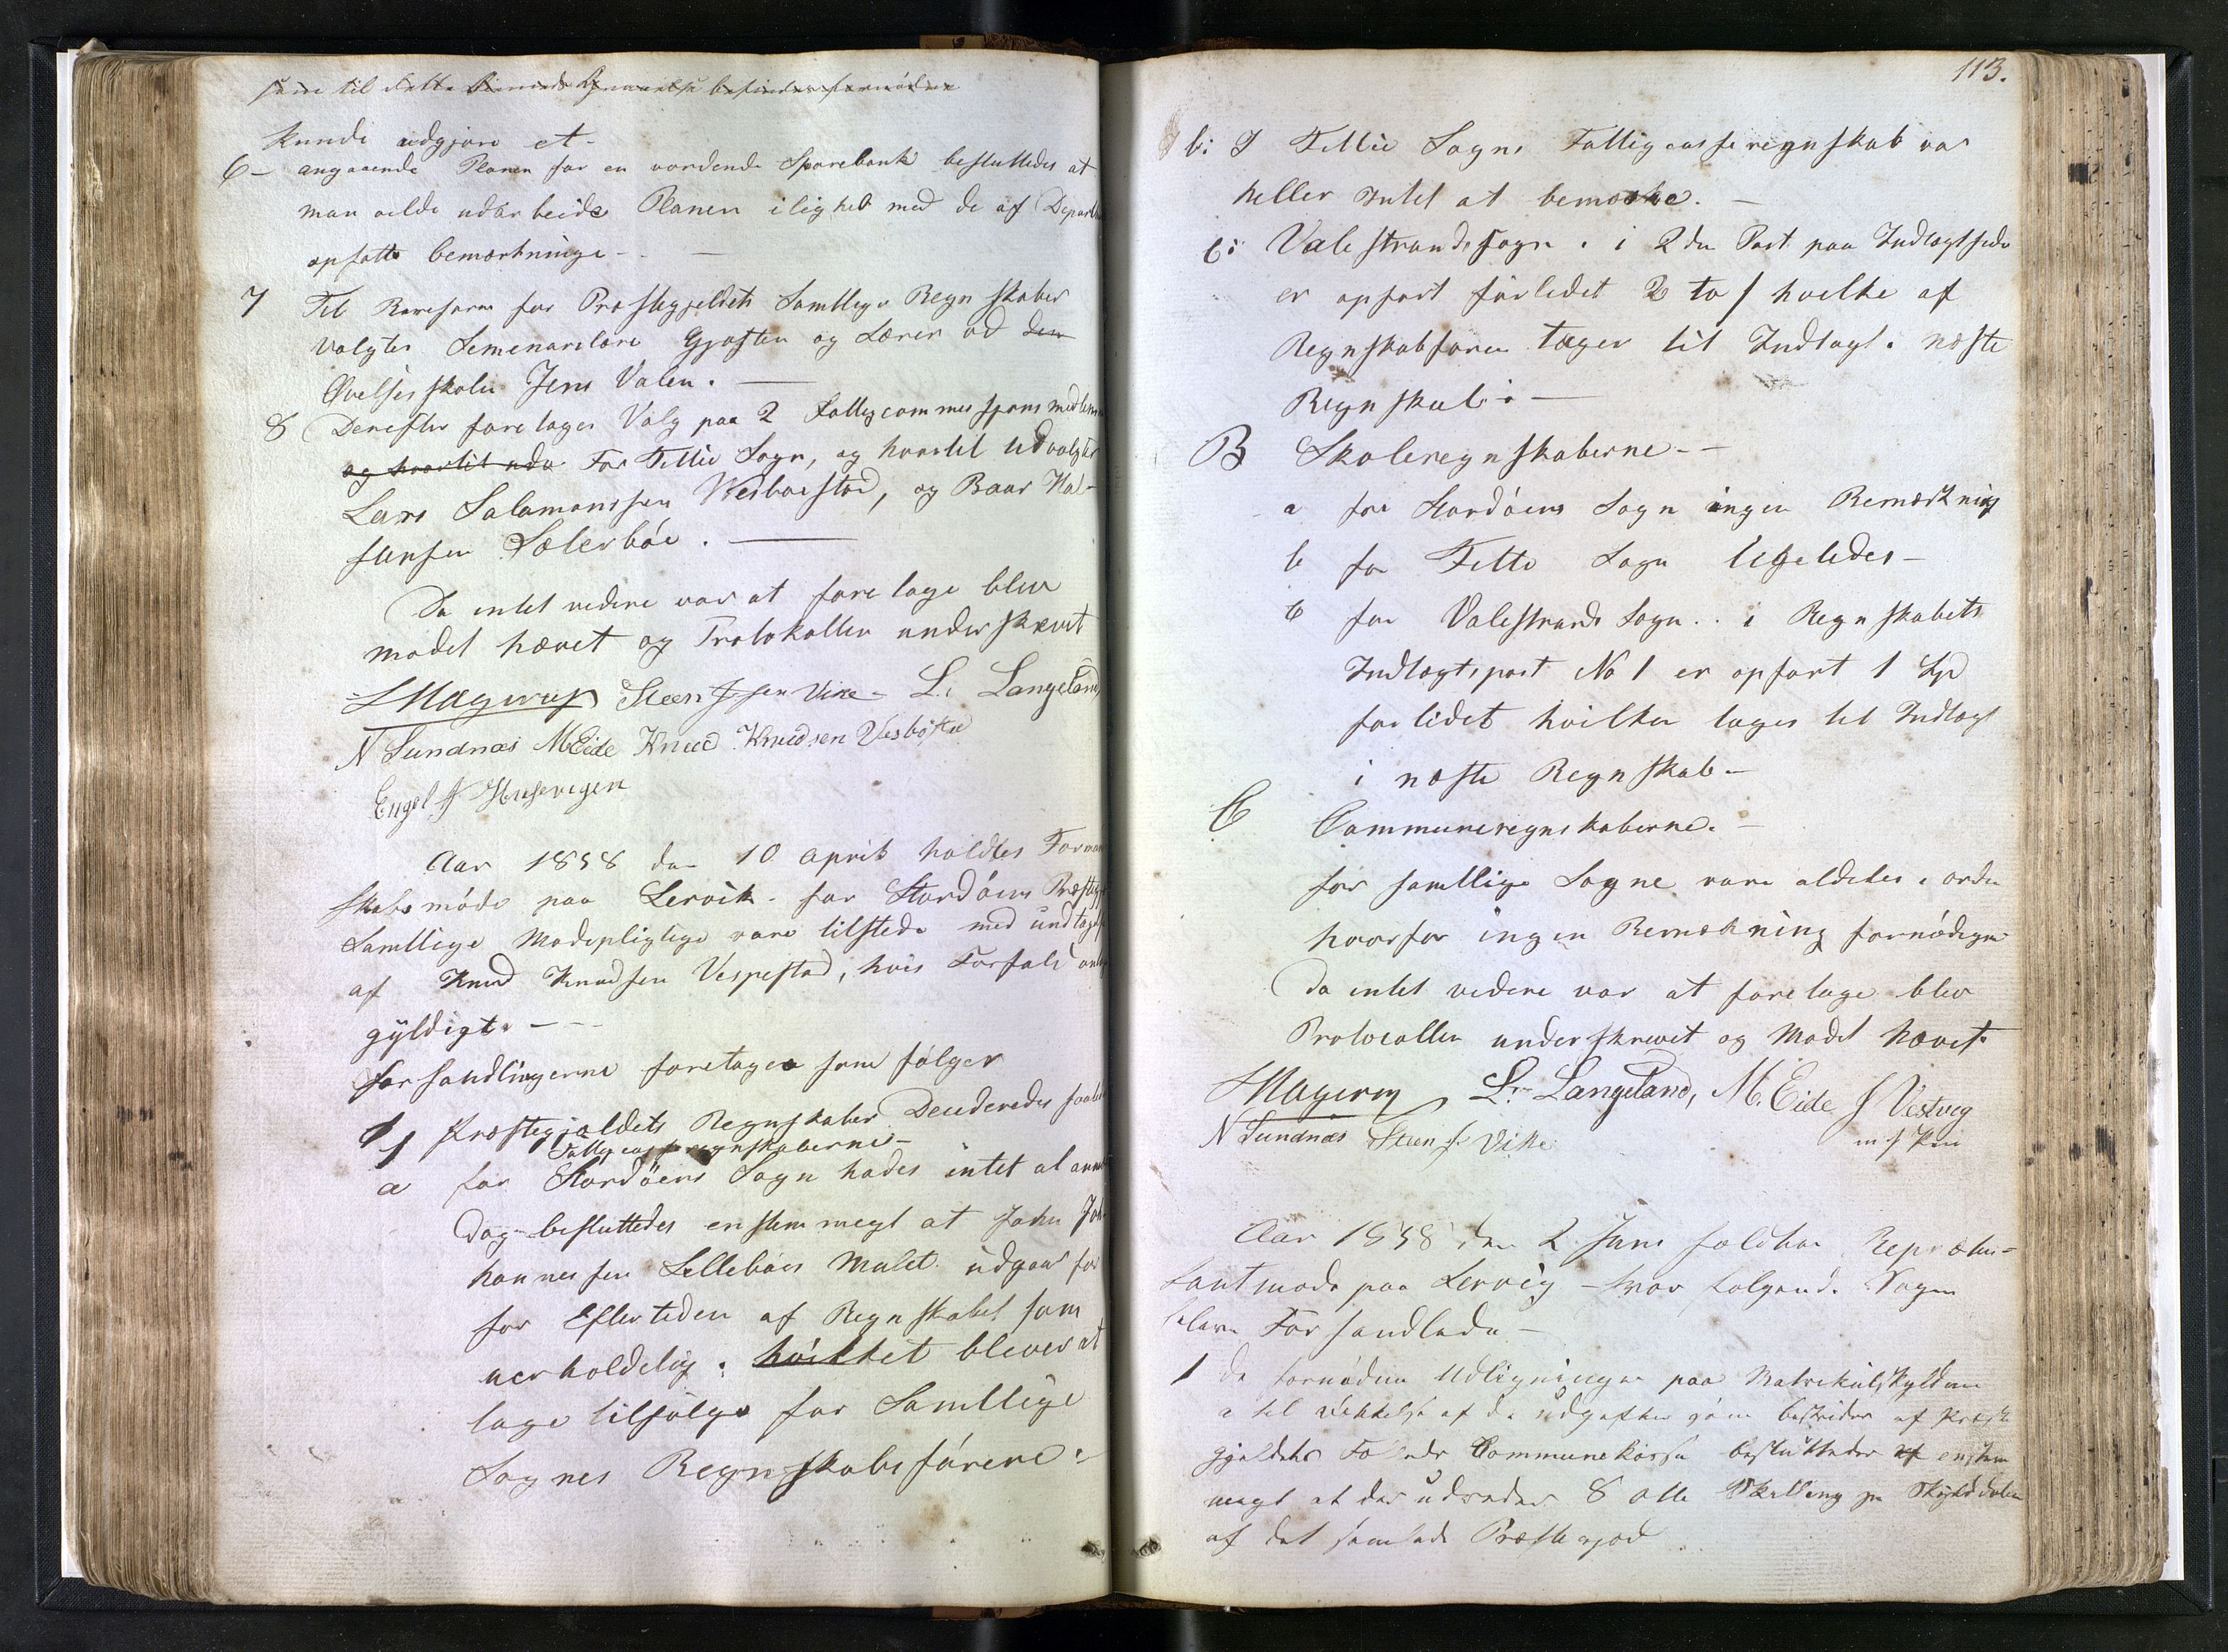 same til dette
kunde udgjøre et-
6- angaaende Planen for en vordende Sparebank besluttedes at
man vilde udarbeide Planen i lighed med de af Depart
opsatte bemærkninge-
7 Til Revisorer for Præstegjeldets Samtlige Regnskaber
valgtes Semenarelærer Gjøsten og Lærer ved den
Øvelsesskolen Jens Valen. —
8 Derefter foretoges Valg paa 2 Fattigcommissjonsmedlem
og hvortil udv For Fittie Sogn, og hvortil udvalgtes
Lars Salamonssen Wesbøstad, og Baar Hal-
sensen Sælerbøe. —
Da intet videre var at foretage blev
mødet hævet og Protokollen underskrevet
Magerup Steen Jssen Vike - L. Langeland,
N Sundnæs M Eide Knud Knudsen Vesbøstad
Engel J Husevigen
Aar 1858 den 10 April holdtes Forman
skabsmøde paa Lervik for Stordøens Præstegj
Samtlige Mødepligtige vare tilstede med undtagel
af Knud Knudsen Vespestad, hvis Forfald an
gyldigt. —
Forhandlingerne foretoges som følger
1 Præstegjældets Regnskaber Decideredes saal
Fattigcasseregnskaberne-
a for Stordøens Sogn hades intet at anm
dog besluttedes enstemmegt at John Joh
hannessen Lillebøes Mulct udgaar for
for Eftertiden af Regnskabet som
uerholdelig; hvilket blever at
tage tilfølge for Samtlige
Sognes Regnskabsførere.
113.
b: I Fittie Sogns Fattigcasseregnskab var
heller Intet at bemærke. —
c: Valestrandsogn. i 2den Post paa Indtægtside
er opført forledet 2 to ſ hvilke af
Regnskabsføren tages til Indtægt i næste
Regnskab. —
B Skoleregnskaberne. -
a for Stordøens Sogn ingen Bemærkning
b for Fitte Sogn ligeledes -
c for Valestrand Sogn. . i Regnskabets
Indtægtspost No 1 er opført 1
forlidet hvilken tages til Indtægt
i næste Regnskab -
C Communeregnskaberne. -
for samtlige Sogne vare aldeles i orden
hvorfor ingen Bemærkning fornødiges
Da intet videre var at foretage blev
Protocollen underskrevet og Mødet hævet.
Magerup L. Langeland, M. Eide J Vestvig
N Sundnæs Steen J. Vike m. f. Pen
Aar 1858 den 2 Juni holdtes Repræsen-
tantmøde paa Lervig - hvor følgende Sager
bleve Forhandlede -
1 De fornødne Udligninger paa Matrikulskylden
a til dækkelse af de udgifter som bestrides af Præste
gjeldets Fælleds Communekasse besluttedes af enstem
megt at der udredes 8 otte Skilling pr Skylddaler
af det samlede Præstegjed